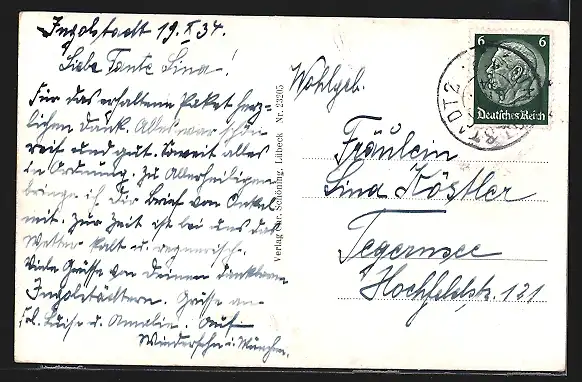 Ingolstadt 19.X 34.
Liebe Tante Lina!
Für das erhaltene Paket herz-
lichen Dank. Alles war schön
reif und gut. Soweit alles
in Ordnung. Zu Allerheiligen
bringe ich Dir Brief von Onkel
mit. Zur Zeit ist bei uns das
Wetter kalt u. regnerisch.
Viele Grüsse von Deinen dankbaren
Ingolstädtern. Grüsse an
Frl. Luise u. Amalie. Auf
Wiedersehn i. München.
Verlag Chr. Schöning, Lübeck Nr. 23205
6 6
Deutsches Reich
Wohlgeb.
Fräulein
Lina Köstler
Tegernsee
Hochfeldstr. 121